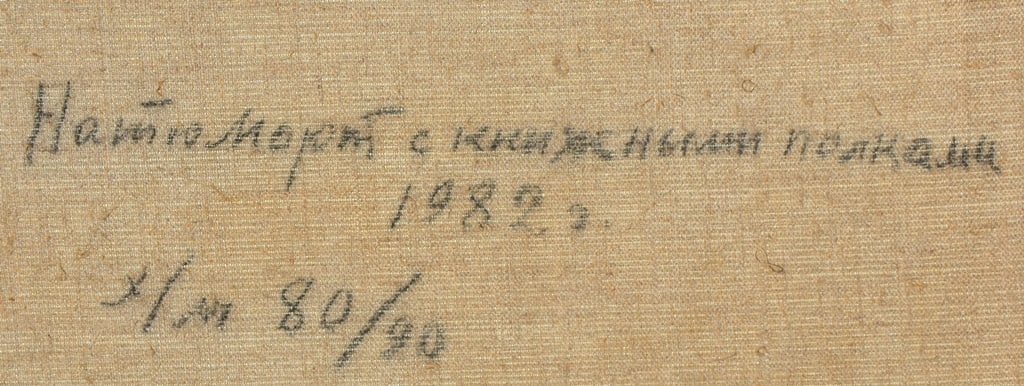 Натюморт с книжеными полками
1982 г.
х/м 80/90